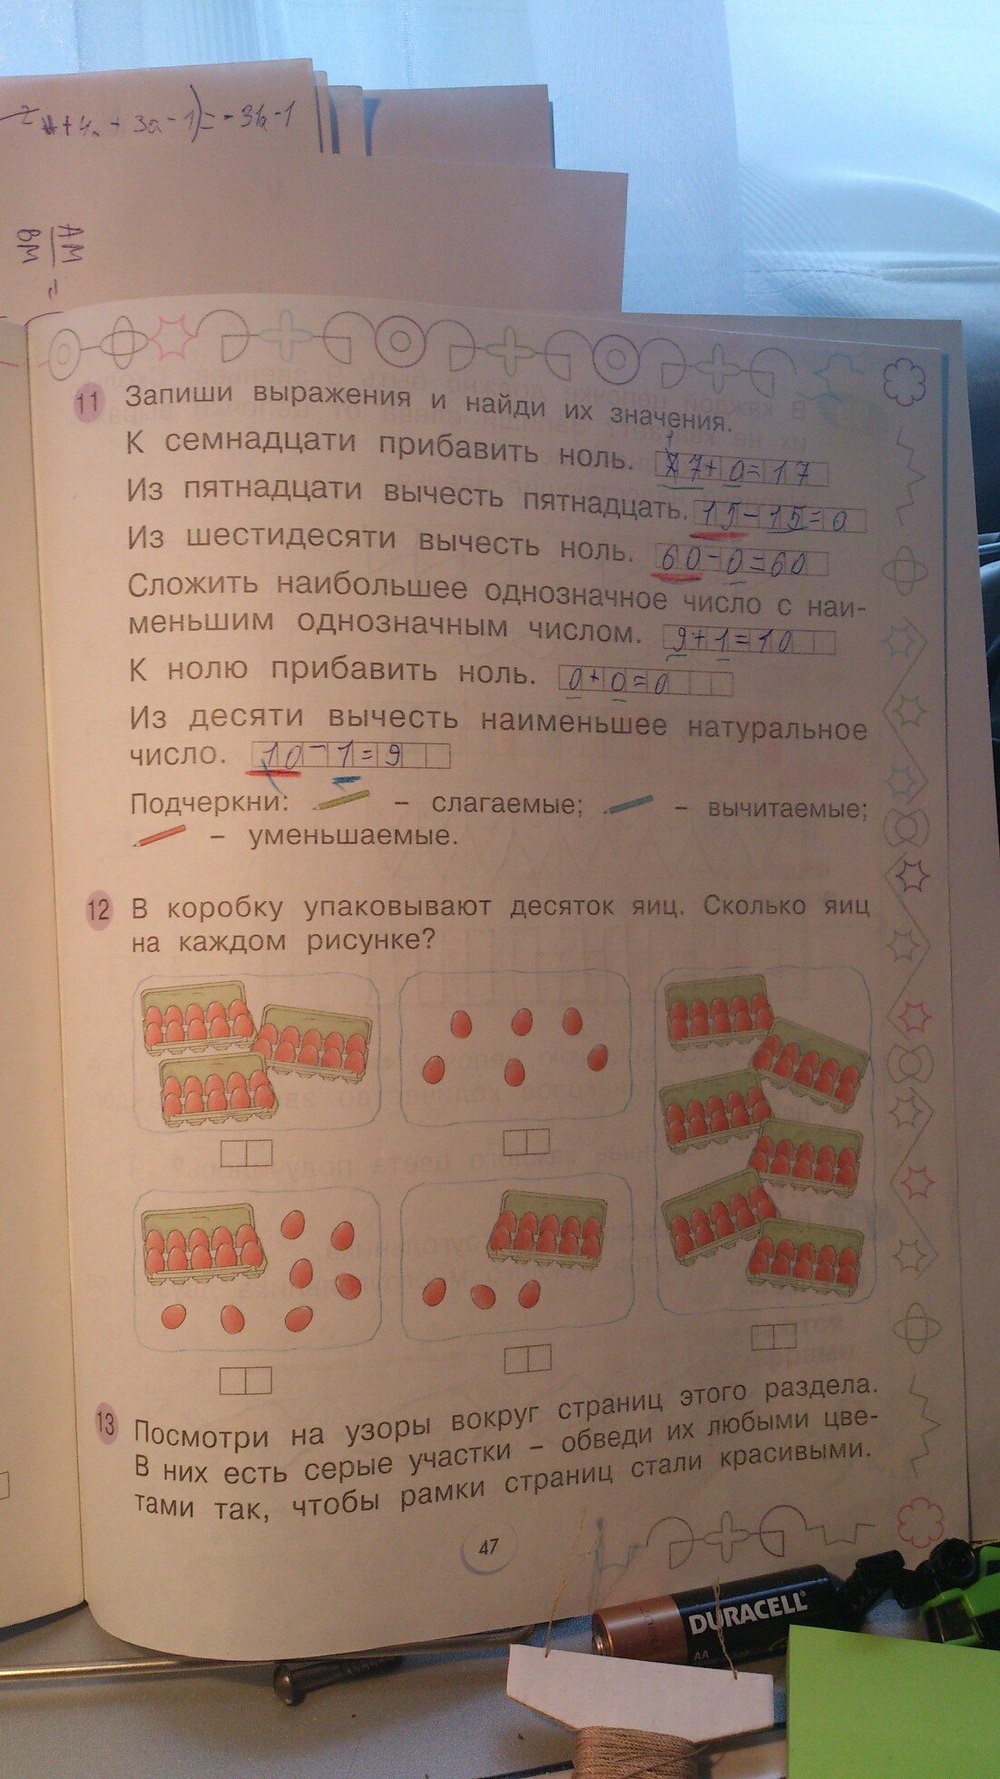 + 3a - 1) = - 3a - 1
AM
BM
=
11 Запиши выражения и найди их значения.
К семнадцати прибавить ноль. 17+0=17
Из пятнадцати вычесть пятнадцать. 15-15=0
Из шестидесяти вычесть ноль. 60-0=60
Сложить наибольшее однозначное число с наи-
меньшим однозначным числом. 9+1=10
К нолю прибавить ноль. 0+0=0
Из десяти вычесть наименьшее натуральное
число. 10-1=9
Подчеркни: – слагаемые; – вычитаемые;
– уменьшаемые.
12 В коробку упаковывают десяток яиц. Сколько яиц
на каждом рисунке?
13 Посмотри на узоры вокруг страниц этого раздела.
В них есть серые участки – обведи их любыми цве-
тами так, чтобы рамки страниц стали красивыми.
47
DURACELL
AA